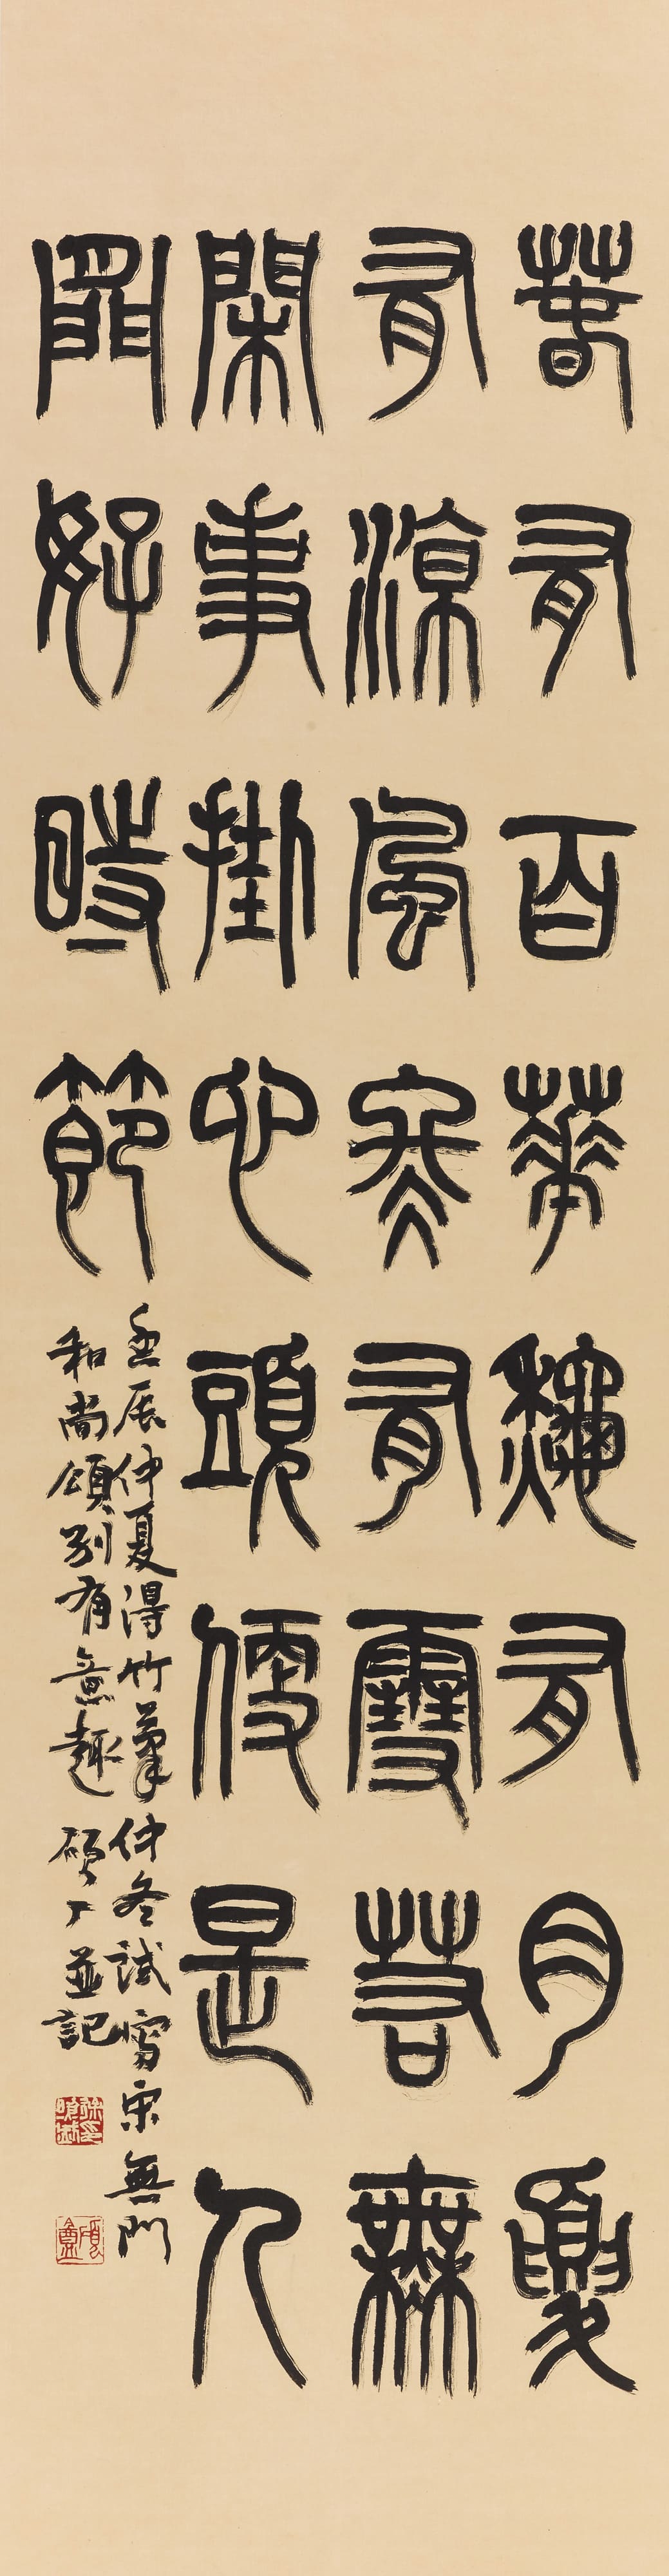 春有百華龝有月夏
有涼風冬有雪若無
閑事掛心頭便是人
間好時節
壬辰仲夏得竹筆仲冬試寫宋無門
和尚頌別有意趣 並記